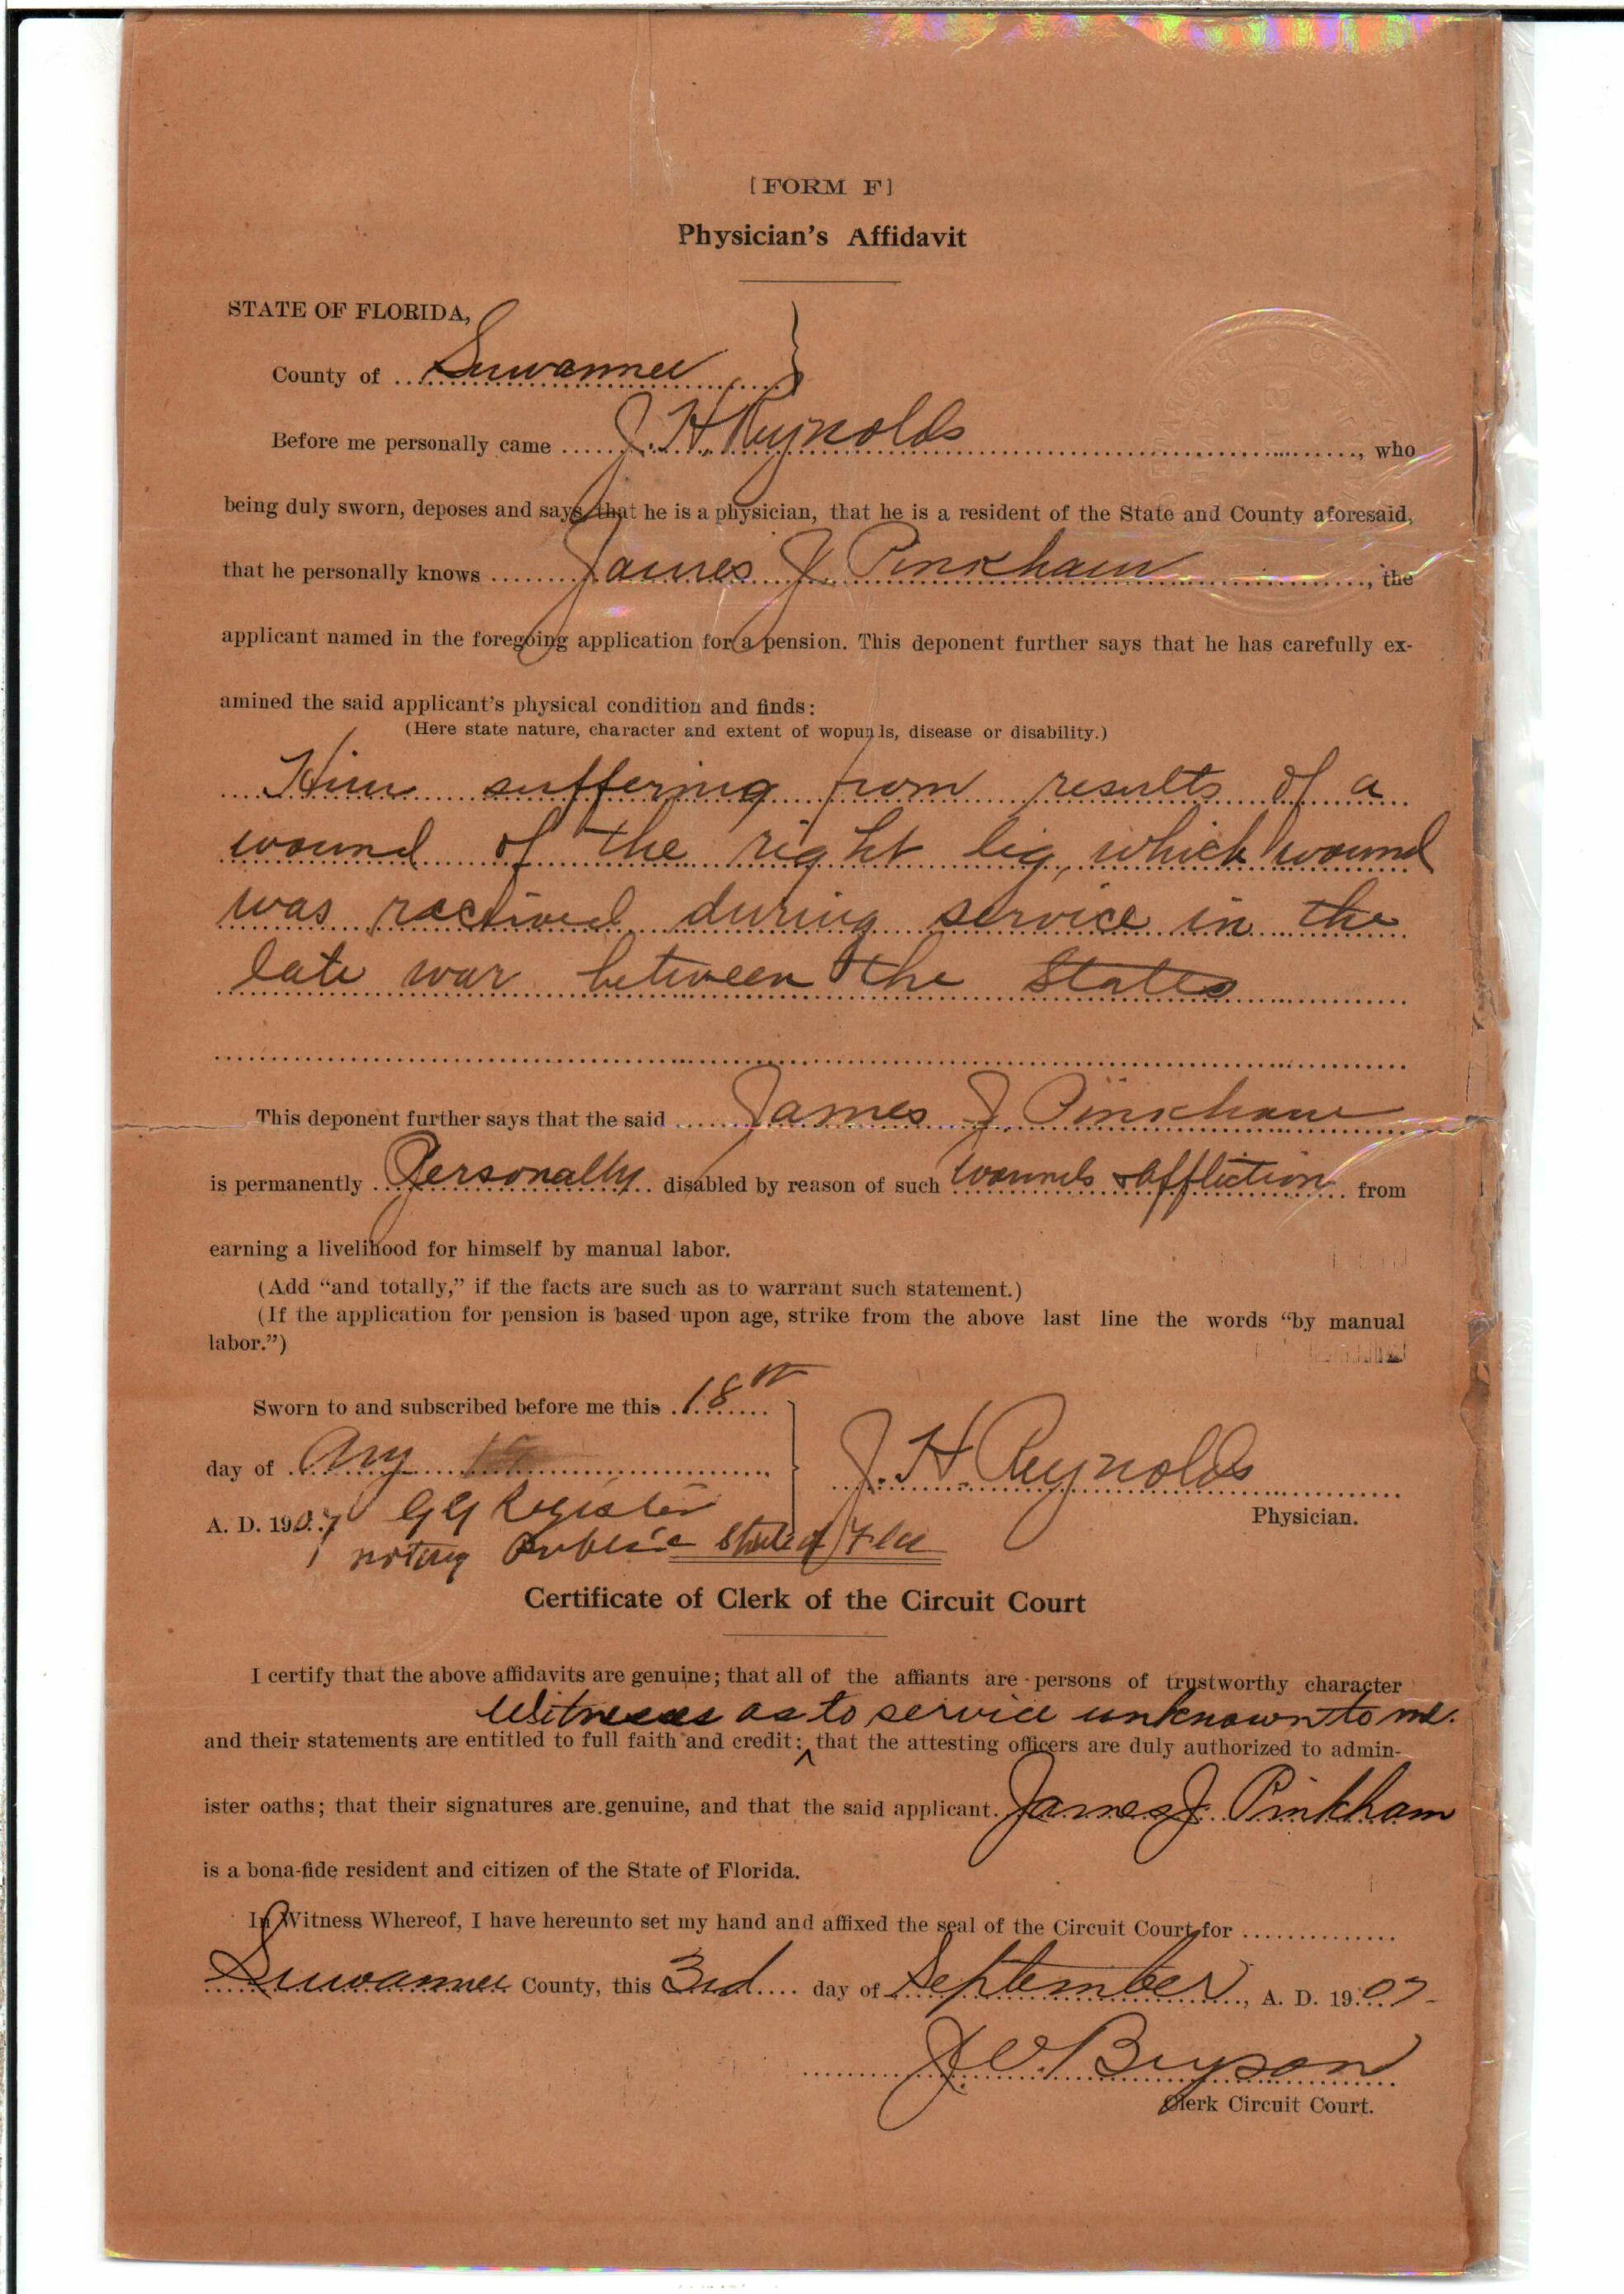 [FORM F]
Physician's Affidavit
STATE OF FLORIDA,
County of Suwannee
Before me personally came J. H. Reynolds, who
being duly sworn, deposes and says that he is a physician, that he is a resident of the State and County aforesaid,
that he personally knows James J. Pinkham, the
applicant named in the foregoing application for a pension. This deponent further says that he has carefully ex-
amined the said applicant's physical condition and finds:
(Here state nature, character and extent of wopunls, disease or disability.)
Him suffering from results of a
wound of the right leg, which wound
was received during service in the
late war between the States
This deponent further says that the said James J. Pinkham
is permanently Personally disabled by reason of such wounds & affliction from
earning a livelihood for himself by manual labor.
(Add "and totally," if the facts are such as to warrant such statement.)
(If the application for pension is based upon age, strike from the above last line the words "by manual
labor.")
Sworn to and subscribed before me this 18th
day of Aug
J. H. Reynolds
Physician.
A. D. 1907
notary Public State of Fla
Certificate of Clerk of the Circuit Court
I certify that the above affidavits are genuine; that all of the affiants are persons of trustworthy character
Witnesses as to service unknown to me.
and their statements are entitled to full faith and credit; that the attesting officers are duly authorized to admin-
ister oaths; that their signatures are genuine, and that the said applicant James J. Pinkham
is a bona-fide resident and citizen of the State of Florida.
In Witness Whereof, I have hereunto set my hand and affixed the seal of the Circuit Court for
Suwannee County, this 3rd day of September, A. D. 1907.
J. W. Bryson
Clerk Circuit Court.